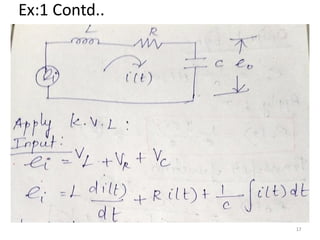 Ex:1 Contd..
L R
ei i(t) C eo
Apply K.V.L :
Input:
ei = VL + VR + VC
ei = L di(t)/dt + R i(t) + 1/C ∫i(t)dt
17